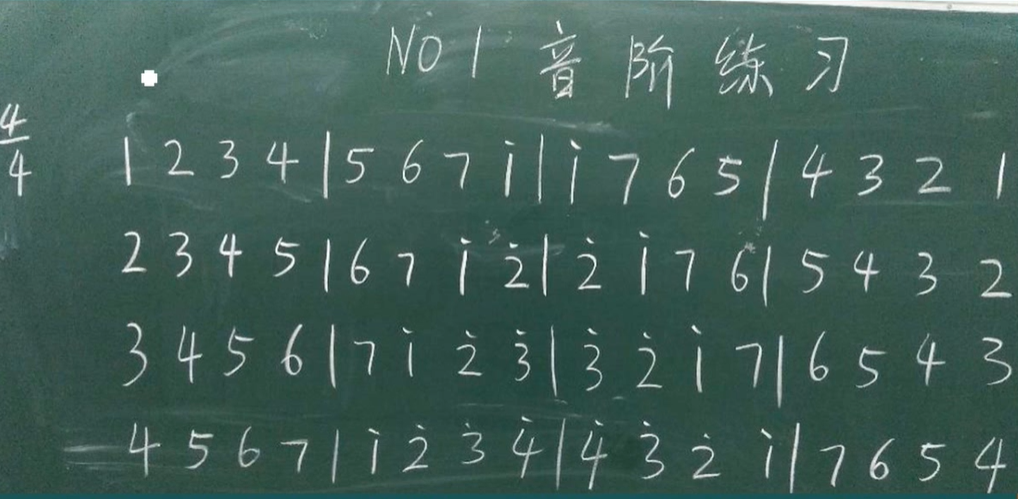 NO1 音阶练习
4/4
1 2 3 4 | 5 6 7 i | i 7 6 5 | 4 3 2 1
2 3 4 5 | 6 7 i 2̇ | 2̇ i 7 6 | 5 4 3 2
3 4 5 6 | 7 i 2̇ 3̇ | 3̇ 2̇ i 7 | 6 5 4 3
4 5 6 7 | i 2̇ 3̇ 4̇ | 4̇ 3̇ 2̇ i | 7 6 5 4